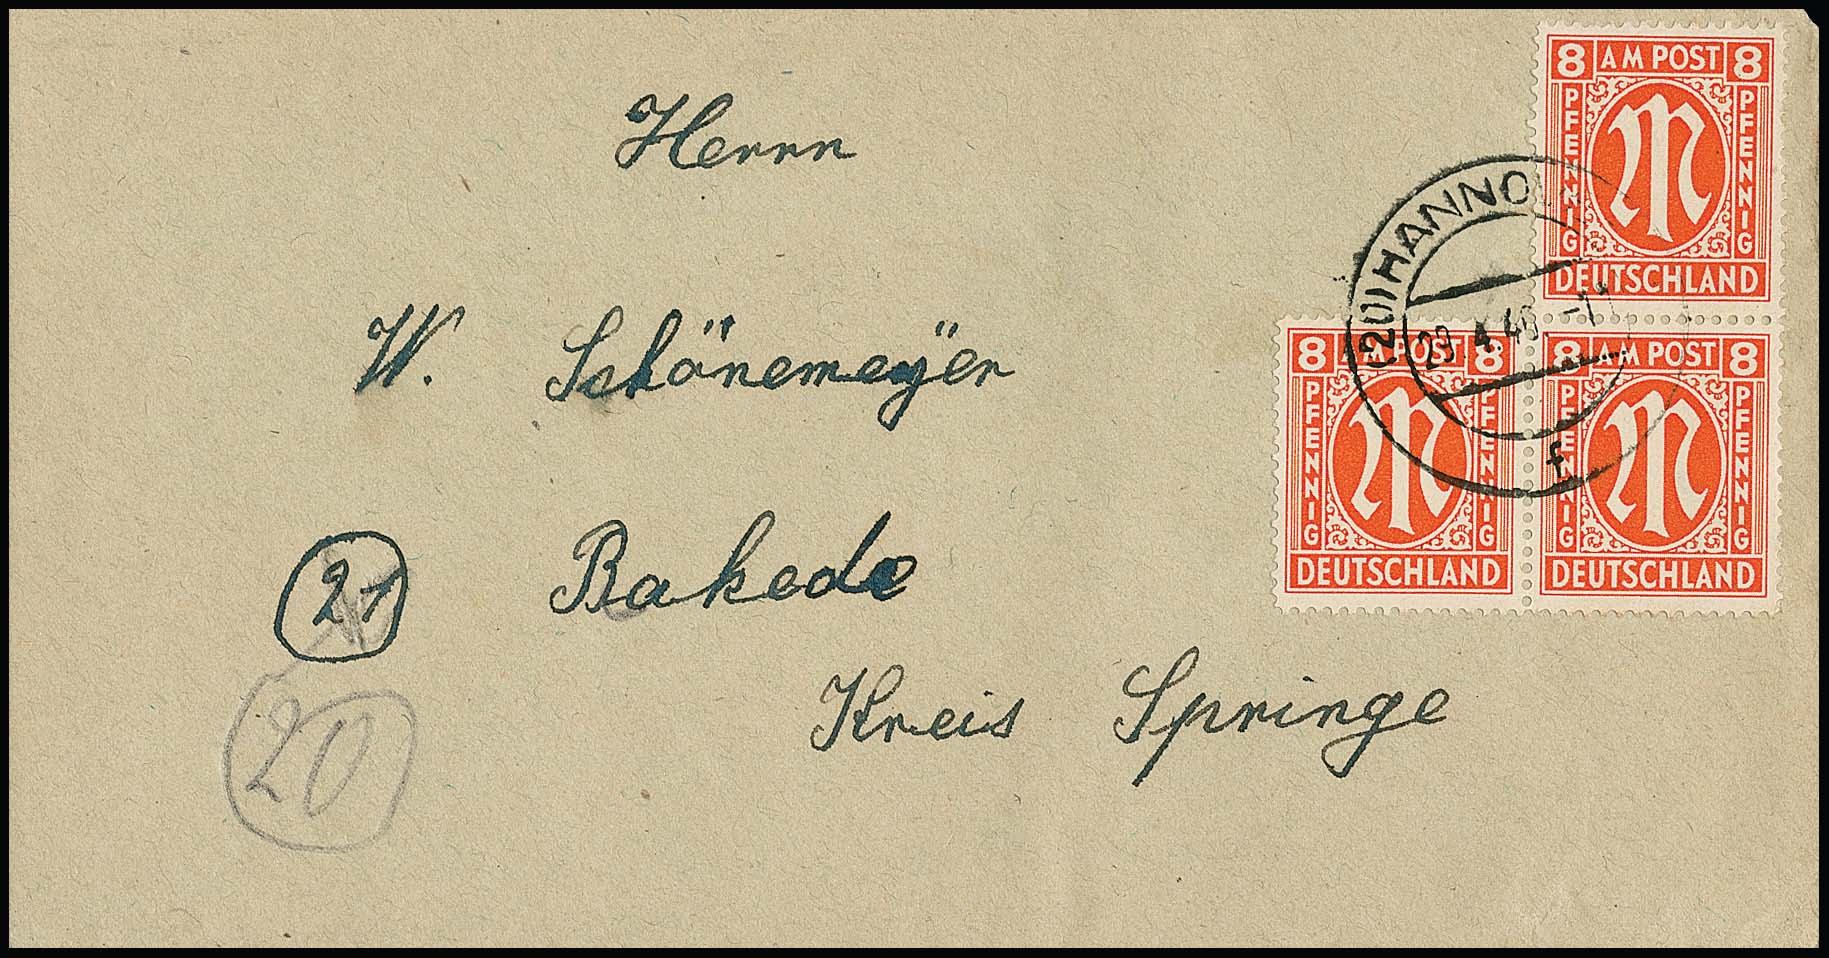 Herrn
W. Schönemeÿer
21
Bakede
20
Kreis Springe
8 AM POST 8
PFENNIG PFENNIG
DEUTSCHLAND
8 AM POST 8
PFENNIG PFENNIG
DEUTSCHLAND
8 AM POST 8
PFENNIG PFENNIG
DEUTSCHLAND
(20) HANNO
29.4.46.
f